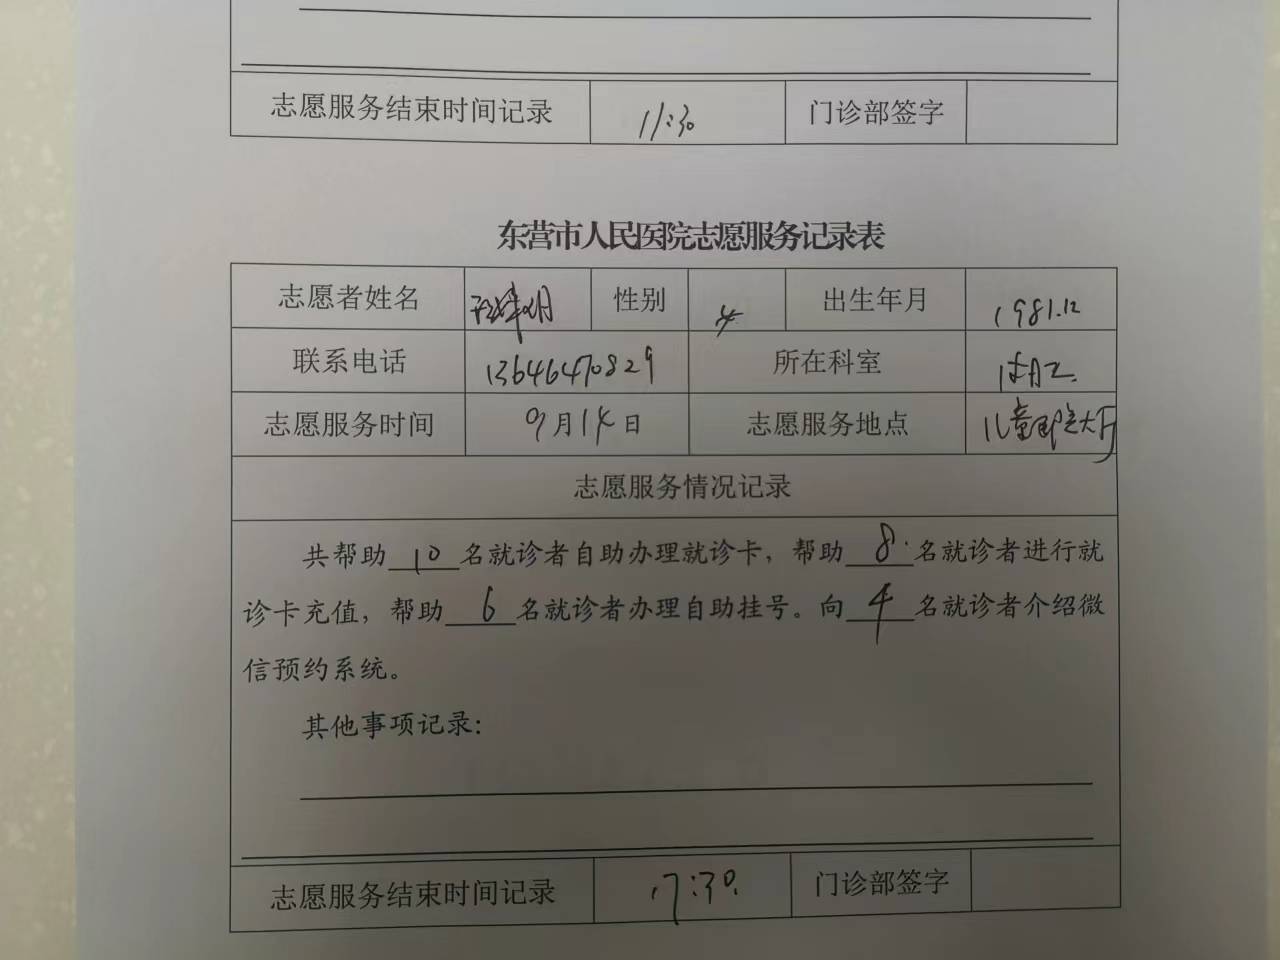 志愿服务结束时间记录 11:30 门诊部签字
东营市人民医院志愿服务记录表
志愿者姓名 性别 女 出生年月 1981.12
联系电话 13646470829 所在科室
志愿服务时间 9月14日 志愿服务地点 儿童医院大厅
志愿服务情况记录
共帮助 10 名就诊者自助办理就诊卡，帮助 8 名就诊者进行就
诊卡充值，帮助 6 名就诊者办理自助挂号。向 4 名就诊者介绍微
信预约系统。
其他事项记录：
志愿服务结束时间记录 17:30. 门诊部签字